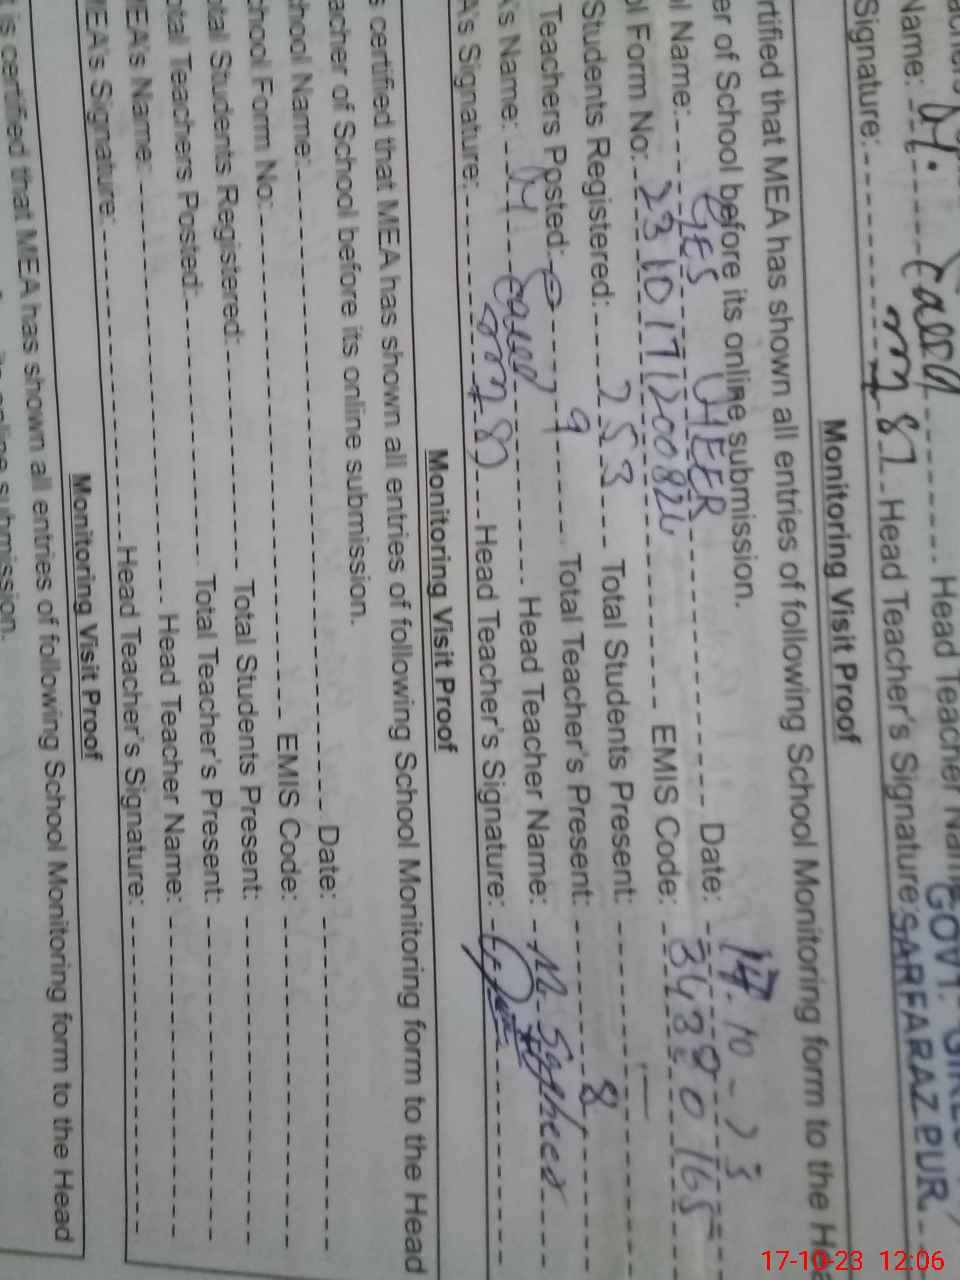 Name: Head Teacher Name
GOVT. GIRLS
Signature: 82 Head Teacher's Signature: SARFARAZ PUR
Monitoring Visit Proof
rtified that MEA has shown all entries of following School Monitoring form to the He
er of School before its online submission.
l Name: GES CHEER Date: 17.10-23
ol Form No: EMIS Code:
Students Registered: 253 Total Students Present:
Teachers Posted: 9 Total Teacher's Present: 8
's Name: M Saeed Head Teacher Name: M. Sagheer
A's Signature: 82 Head Teacher's Signature:
Monitoring Visit Proof
s certified that MEA has shown all entries of following School Monitoring form to the Head
acher of School before its online submission.
hool Name: Date:
chool Form No: EMIS Code:
otal Students Registered: Total Students Present:
otal Teachers Posted: Total Teacher's Present:
MEA's Name: Head Teacher Name:
MEA's Signature: Head Teacher's Signature:
Monitoring Visit Proof
t is certified that MEA has shown all entries of following School Monitoring form to the Head
online submission.
17-10-23 12:06